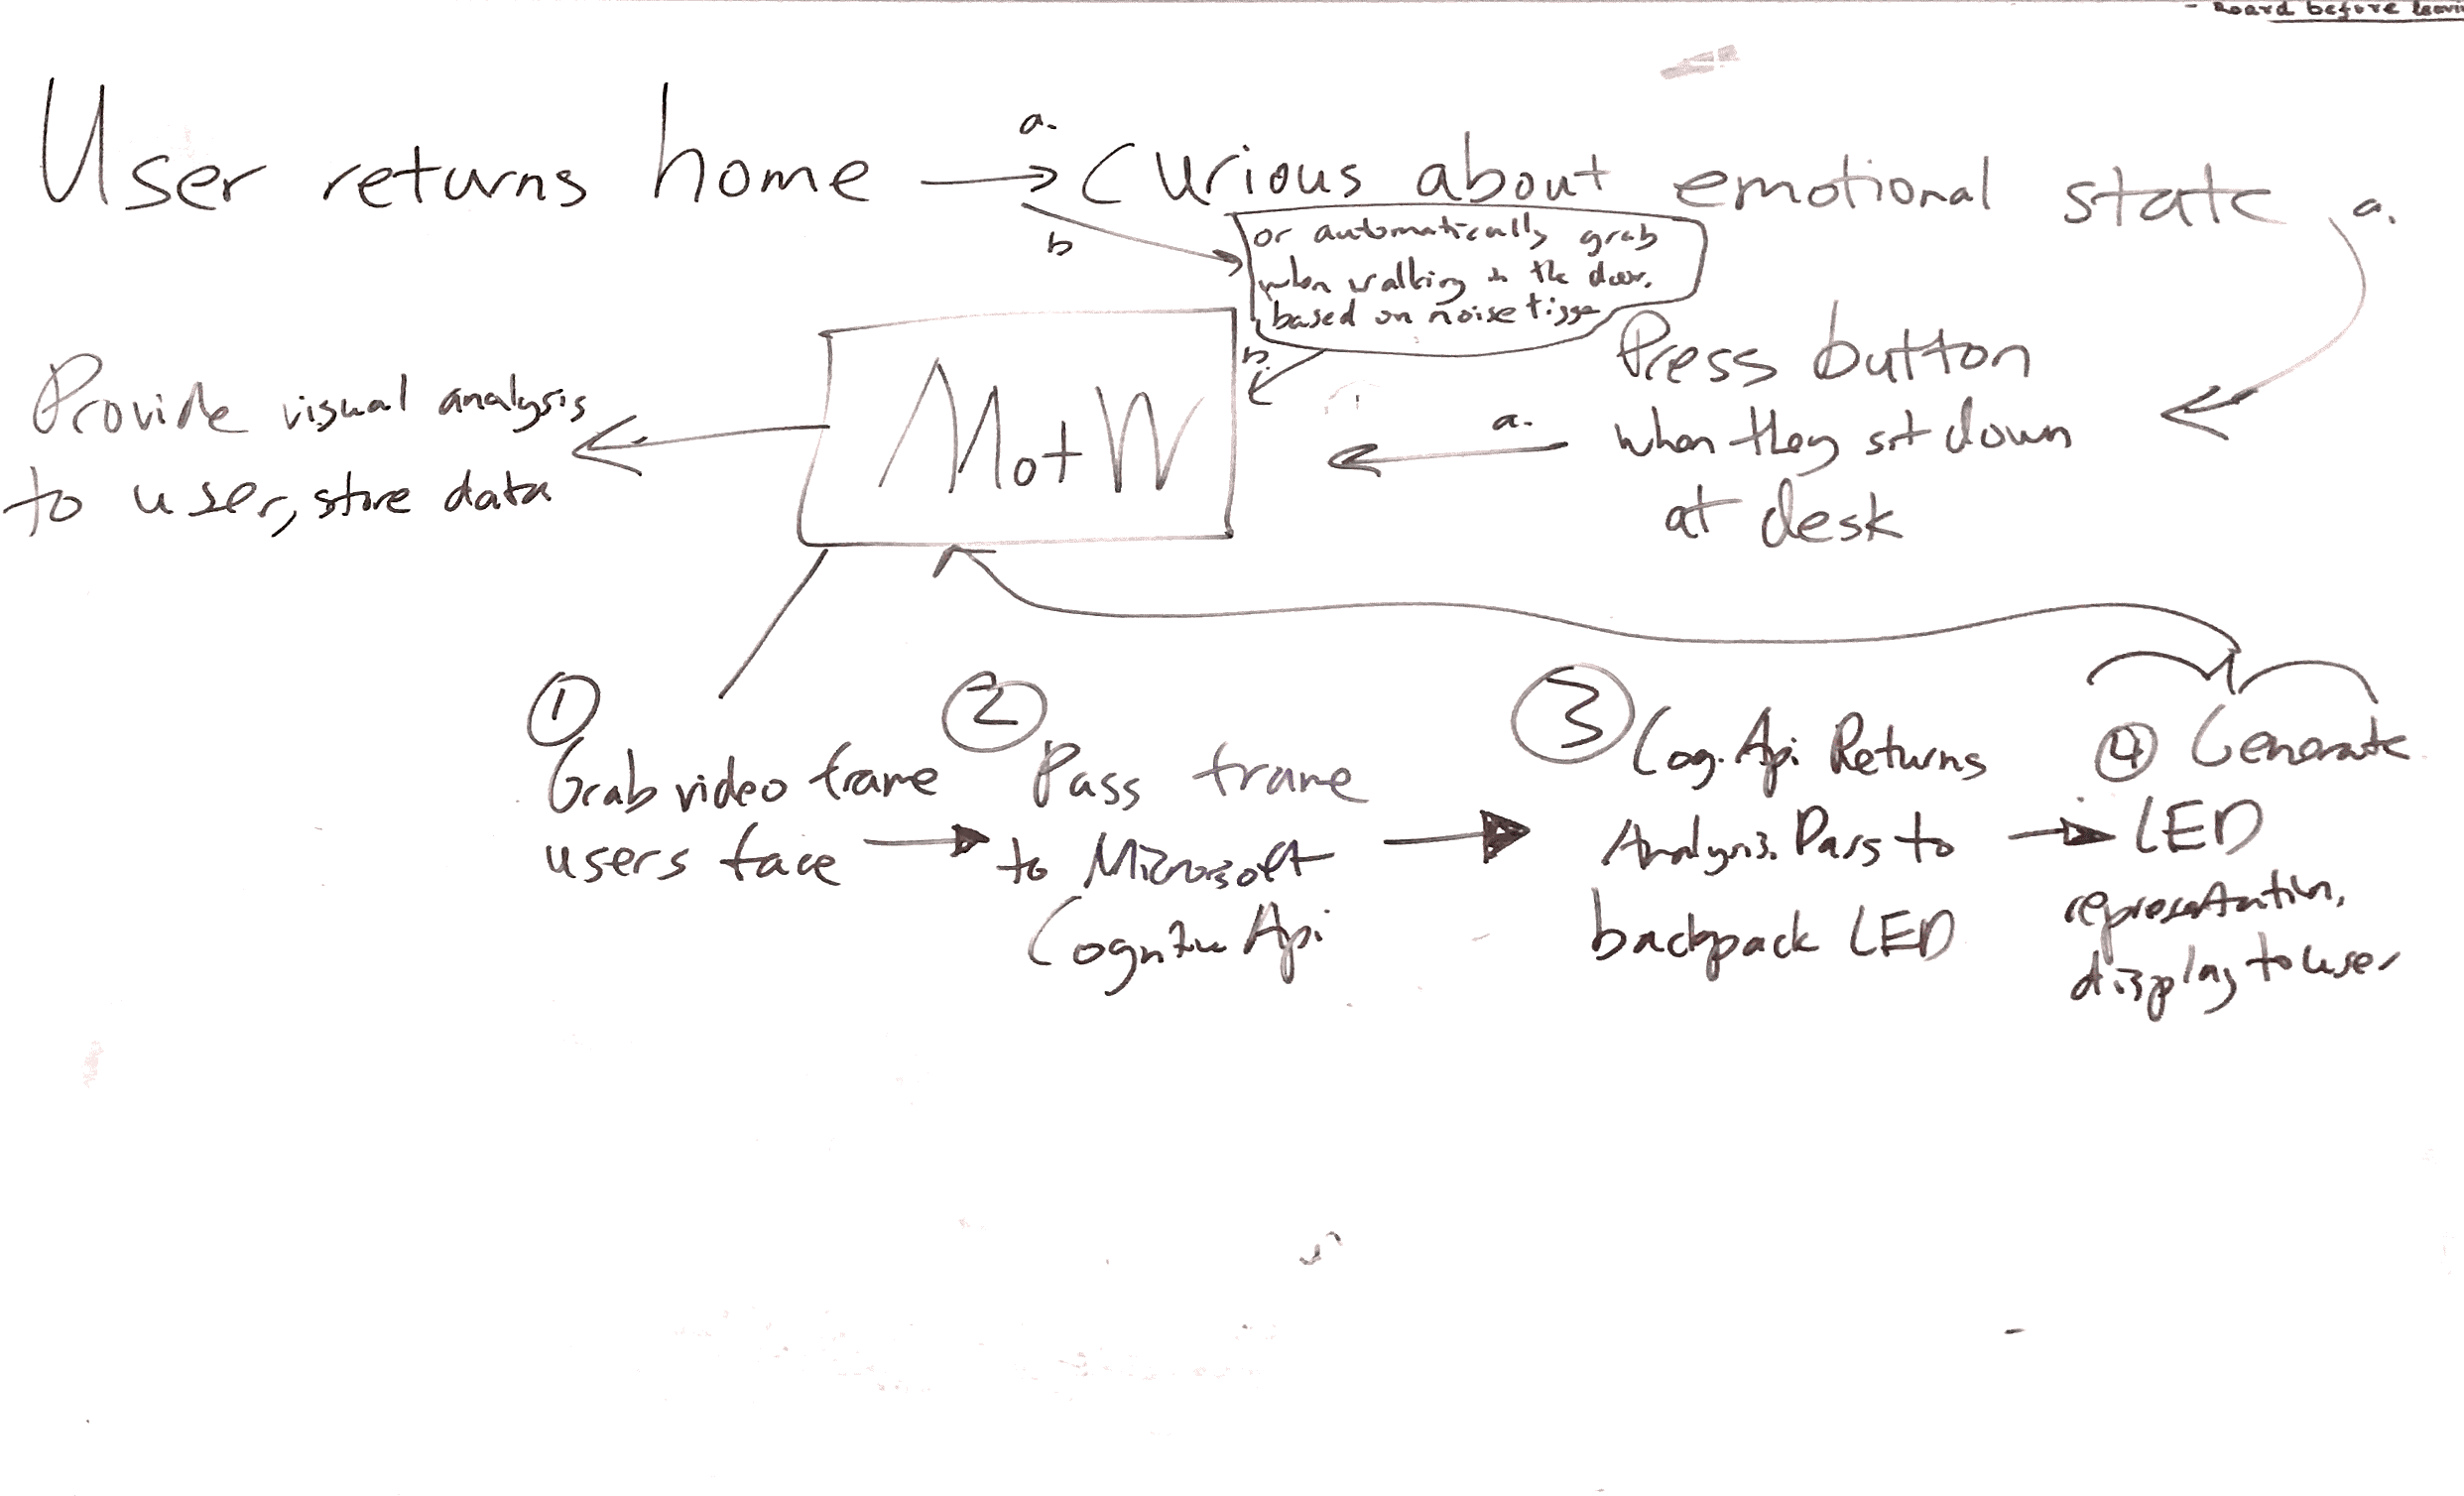 - Board before
User returns home
a.
Curious about emotional state
a.
b
or automatically grab
when walking in the door,
based on noise
b.
Press button
when they sit down
at desk
a.
MotW
Provide visual analysis
to user, store data
①
Grab video frame
users face
②
Pass frame
to Microsoft
Cognitive Api
③ Cog. Api Returns
Analysis. Pass to
backpack LED
④ Generate
LED
representation,
display to user